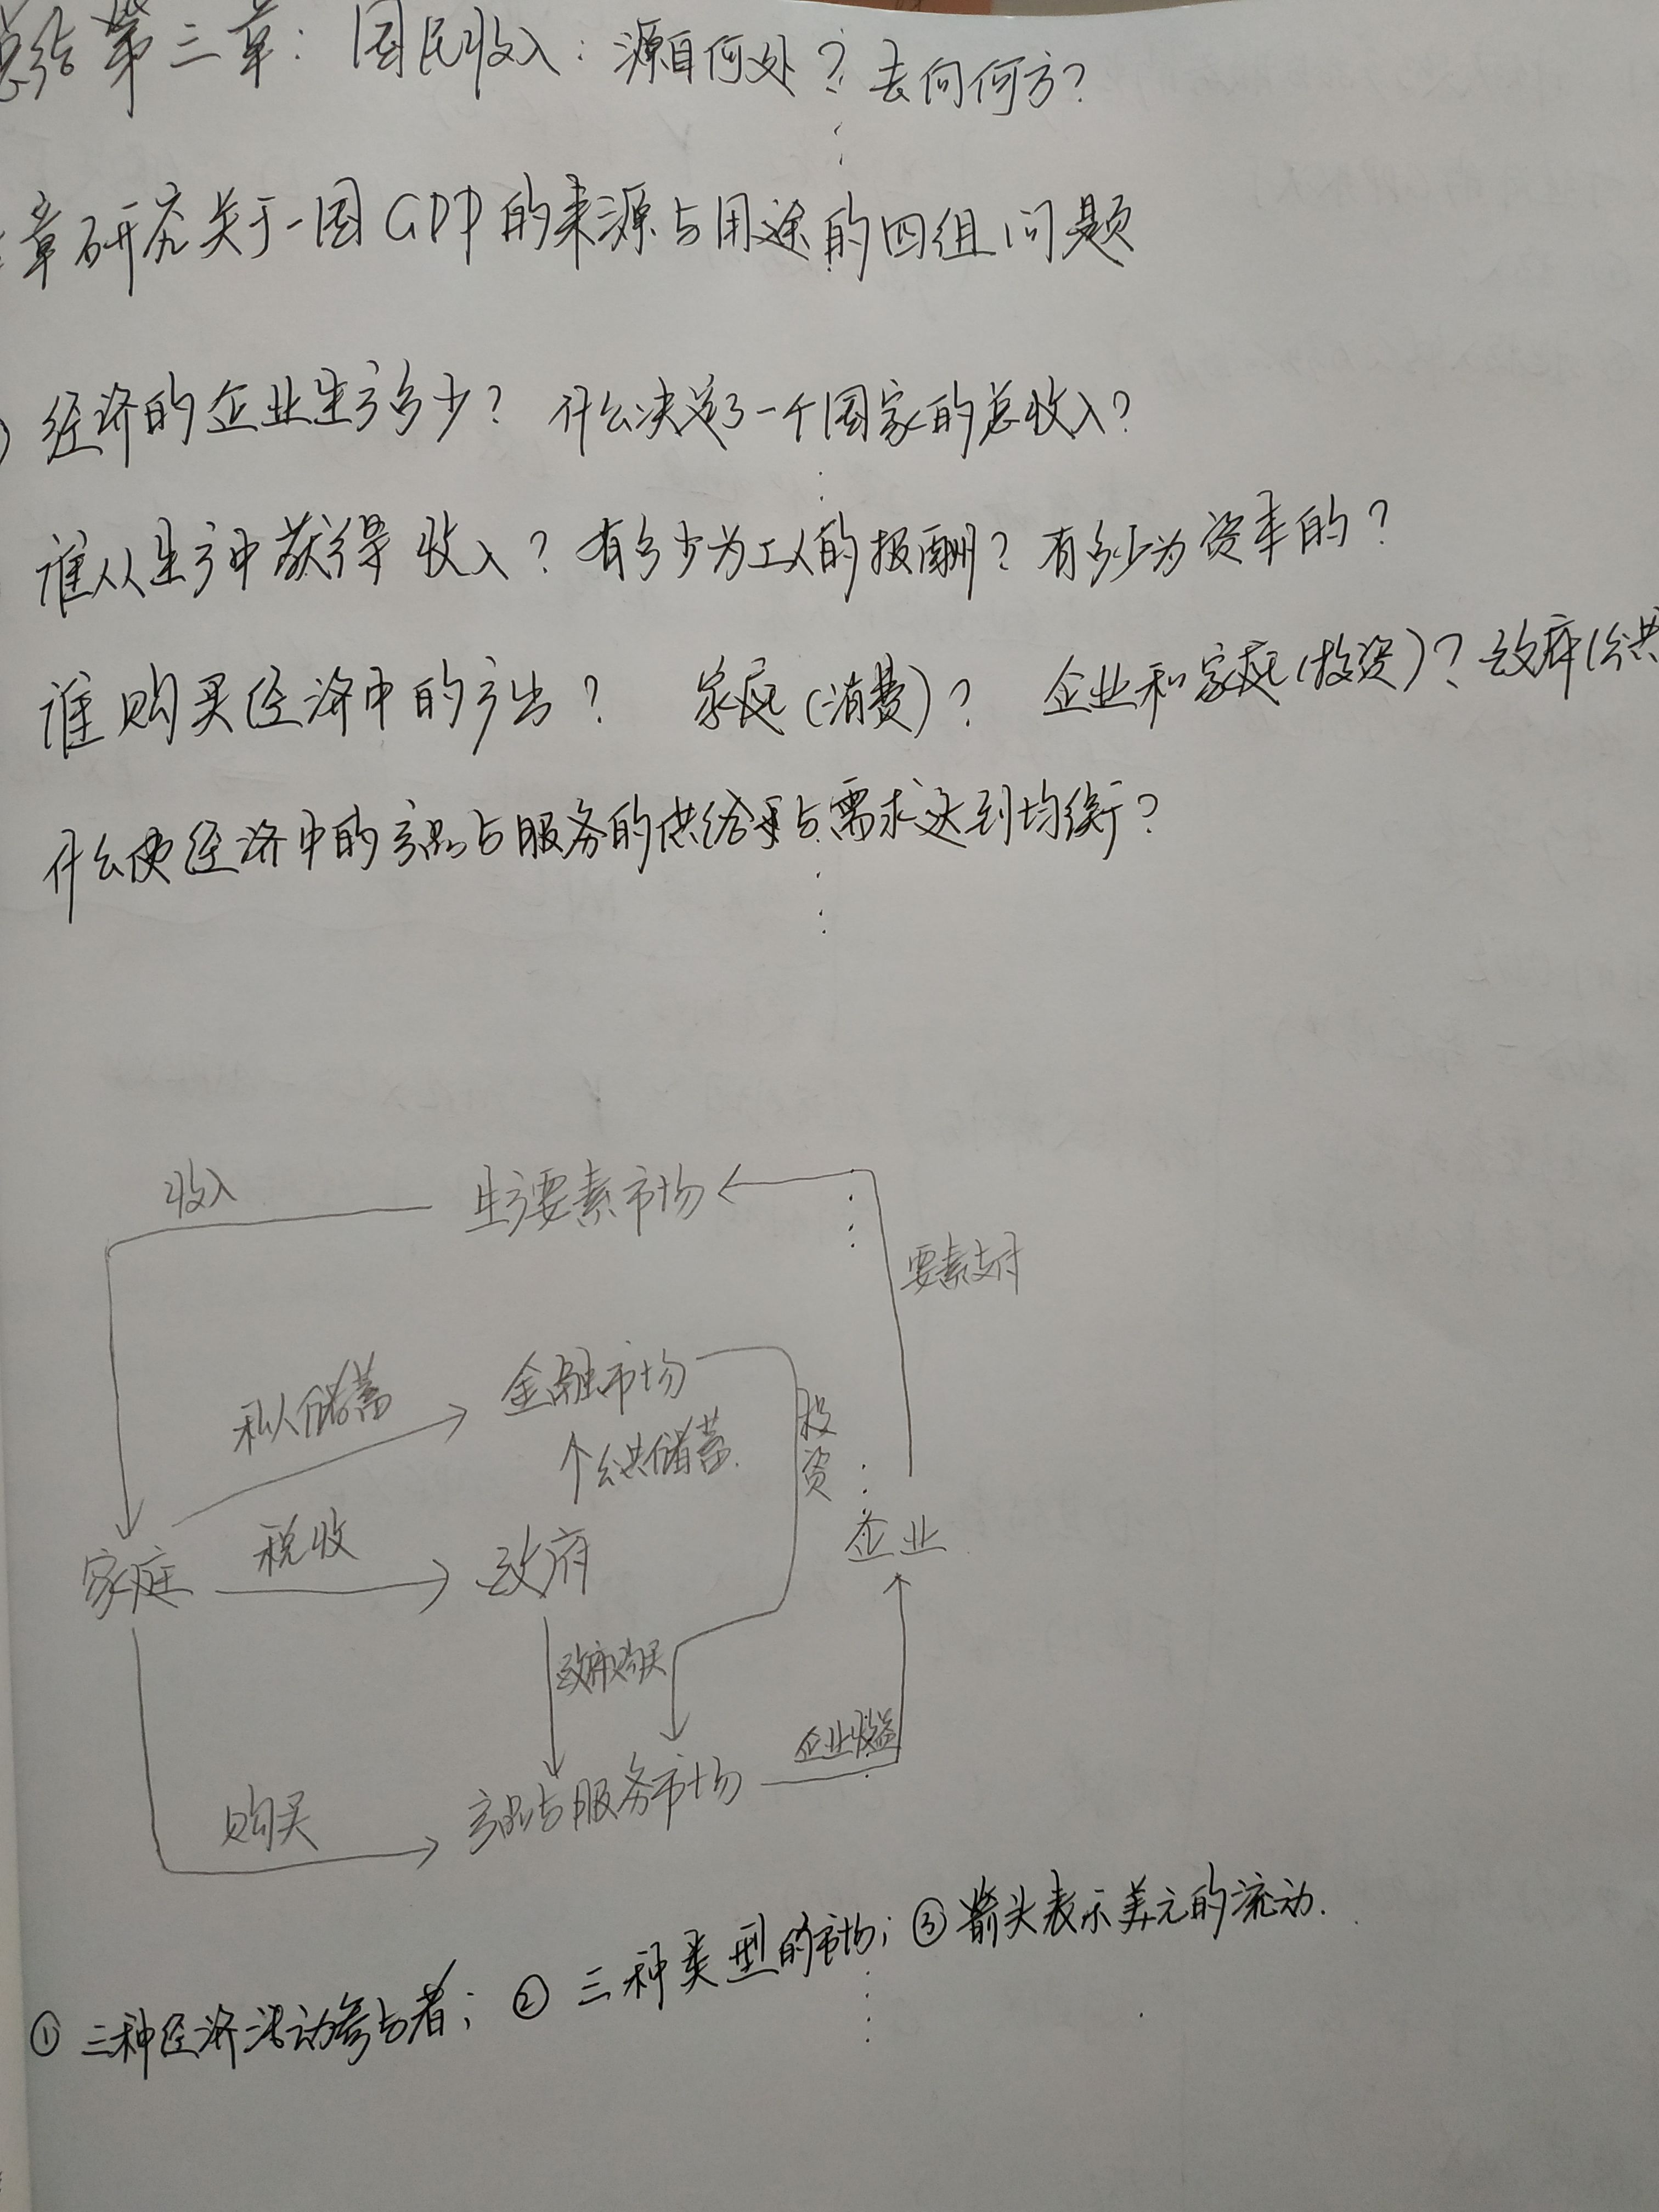 总结第三章：国民收入：源自何处？去向何方？
章研究关于一国GDP的来源与用途的四组问题
) 经济的企业生产多少？ 什么决定了一个国家的总收入？
谁从生产中获得收入？有多少为工人的报酬？有多少为资本的？
谁购买经济中的产出？ 家庭（消费）？ 企业和家庭（投资）？政府（公共
什么使经济中的产品与服务的供给与需求达到均衡？
收入 生产要素市场
要素支付
私人储蓄 金融市场
个公共储蓄 投资
家庭 税收 政府 企业
政府购买
企业收益
购买 产品与服务市场
① 三种经济活动参与者；② 三种类型的市场；③ 箭头表示美元的流动.